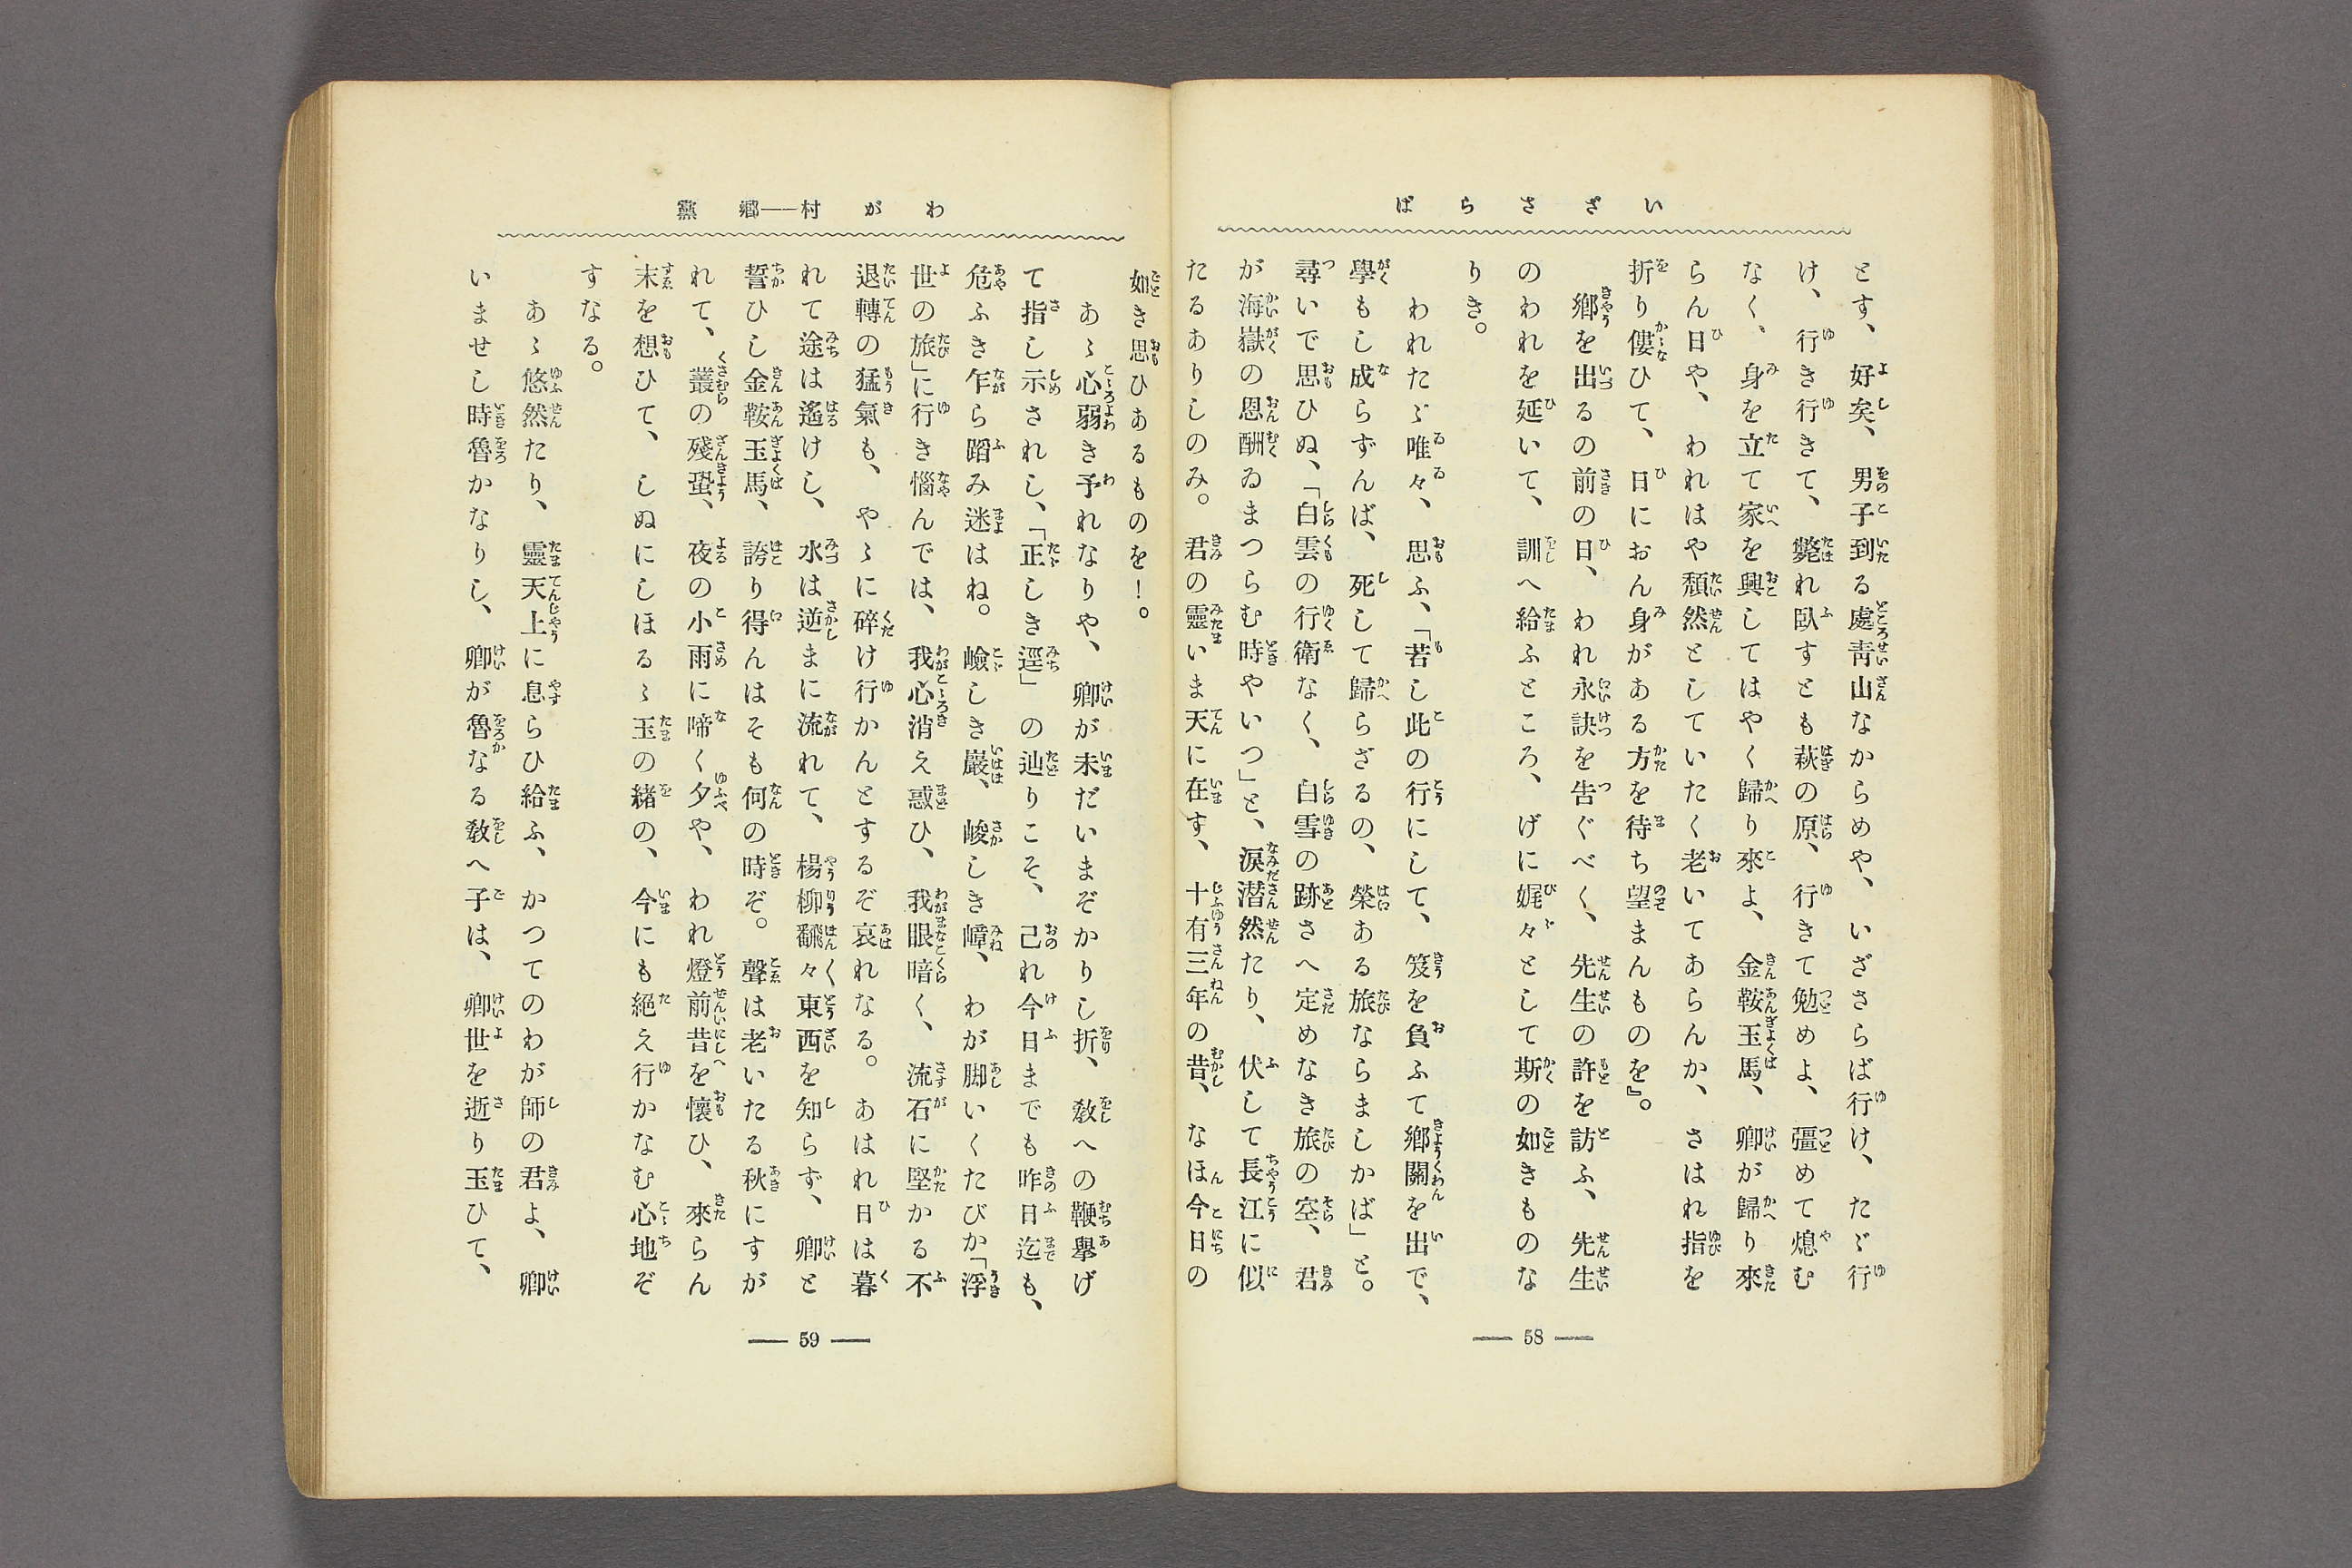 いざさらば
とす、好矣、男子到る處靑山なからめや、いざさらば行け、たゞ行
け、行き行きて、斃れ臥すとも萩の原、行きて勉めよ、彊めて熄む
なく、身を立て家を興してはやく歸り來よ、金鞍玉馬、卿が歸り來
らん日や、われはや頽然としていたく老いてあらんか、さはれ指を
折り僂ひて、日におん身がある方を待ち望まんものを』。
鄕を出るの前の日、われ永訣を告ぐべく、先生の許を訪ふ、先生
のわれを延いて、訓へ給ふところ、げに娓々として斯の如きものな
りき。
われたゞ唯々、思ふ、「若し此の行にして、笈を負ふて鄕關を出で、
學もし成らずんば、死して歸らざるの、榮ある旅ならましかば」と。
尋いで思ひぬ、「白雲の行衛なく、白雪の跡さへ定めなき旅の空、君
が海嶽の恩酬ゐまつらむ時やいつ」と、淚潜然たり、伏して長江に似
たるありしのみ。君の靈いま天に在す、十有三年の昔、なほ今日の
— 58 —
わが村——鄕黨
如き思ひあるものを！。
あゝ心弱き予れなりや、卿が未だいまぞかりし折、敎への鞭擧げ
て指し示されし、「正しき逕」の辿りこそ、己れ今日までも昨日迄も、
危ふき乍ら蹈み迷はね。嶮しき巖、峻しき嶂、わが脚いくたびか「浮
世の旅」に行き惱んでは、我心消え惑ひ、我眼暗く、流石に堅かる不
退轉の猛氣も、やゝに碎け行かんとするぞ哀れなる。あはれ日は暮
れて途は遙けし、水は逆まに流れて、楊柳飜々東西を知らず、卿と
誓ひし金鞍玉馬、誇り得んはそも何の時ぞ。聲は老いたる秋にすが
れて、叢の殘蛩、夜の小雨に啼く夕や、われ燈前昔を懷ひ、來らん
末を想ひて、しぬにしほるゝ玉の緖の、今にも絕え行かなむ心地ぞ
すなる。
あゝ悠然たり、靈天上に息らひ給ふ、かつてのわが師の君よ、卿
いませし時魯かなりし、卿が魯なる敎へ子は、卿世を逝り玉ひて、
— 59 —